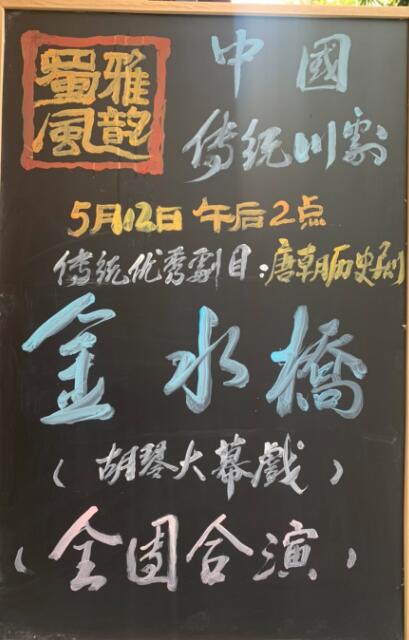 蜀風雅韵
中國
传统川剧
5月12日 午后2点
传统优秀剧目：唐朝历史剧
金水橋
（胡琴大幕戲）
（全团合演）